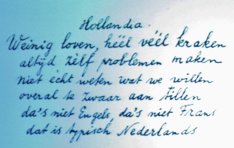 Hollandia.
Weinig loven, héél véél kraken
altijd zélf problemen maken
niet écht weten wat we willen
overal te zwaar aan tillen
da's niet Engels, da's niet Frans
dat is typisch Nederlands